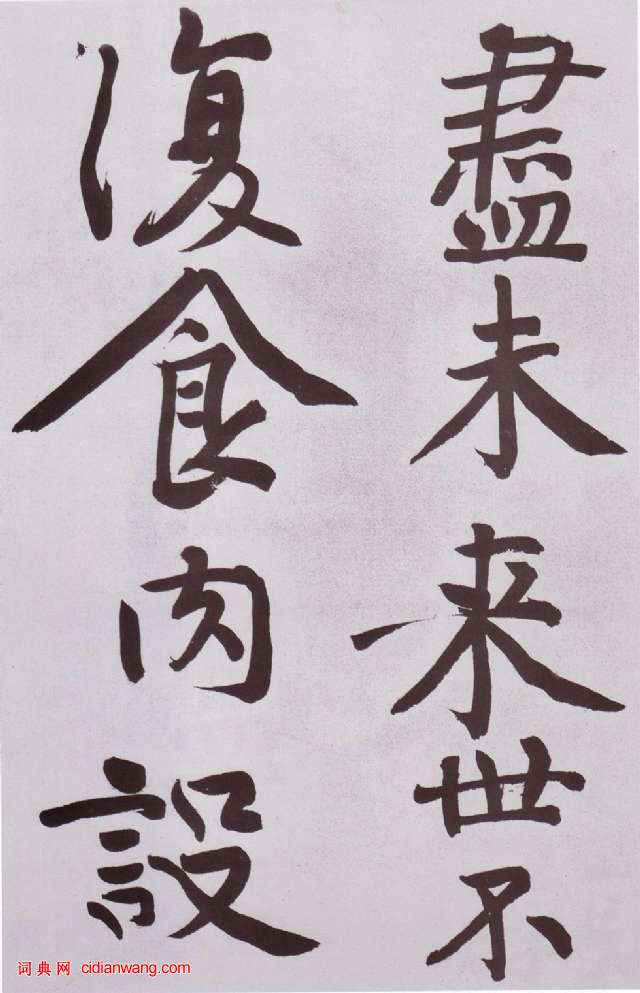 盡未来世不
復食肉設
词典网 cidianwang.com